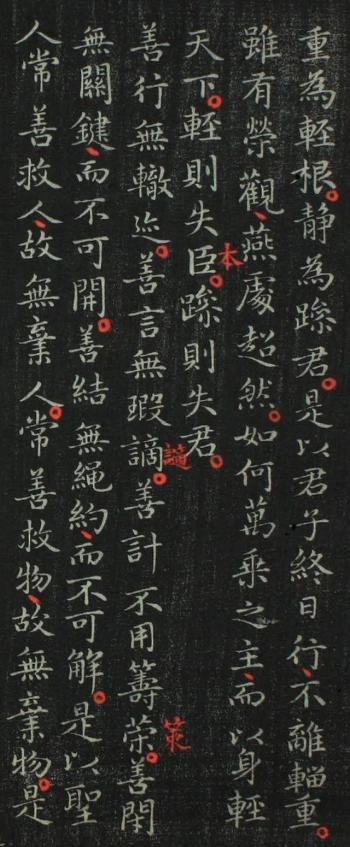 重為輊根。静為躁君。是以君子終日行、不離輜重。
雖有榮觀、燕處超然。如何萬乘之主、而以身輕
天下。輊則失臣。躁則失君。
本
善行無轍迹。善言無瑕謫。善計不用籌策。善閇
讁
筞
無關鍵、而不可開。善結無繩約、而不可解。是以聖
人常善救人、故無棄人。常善救物、故無棄物。是